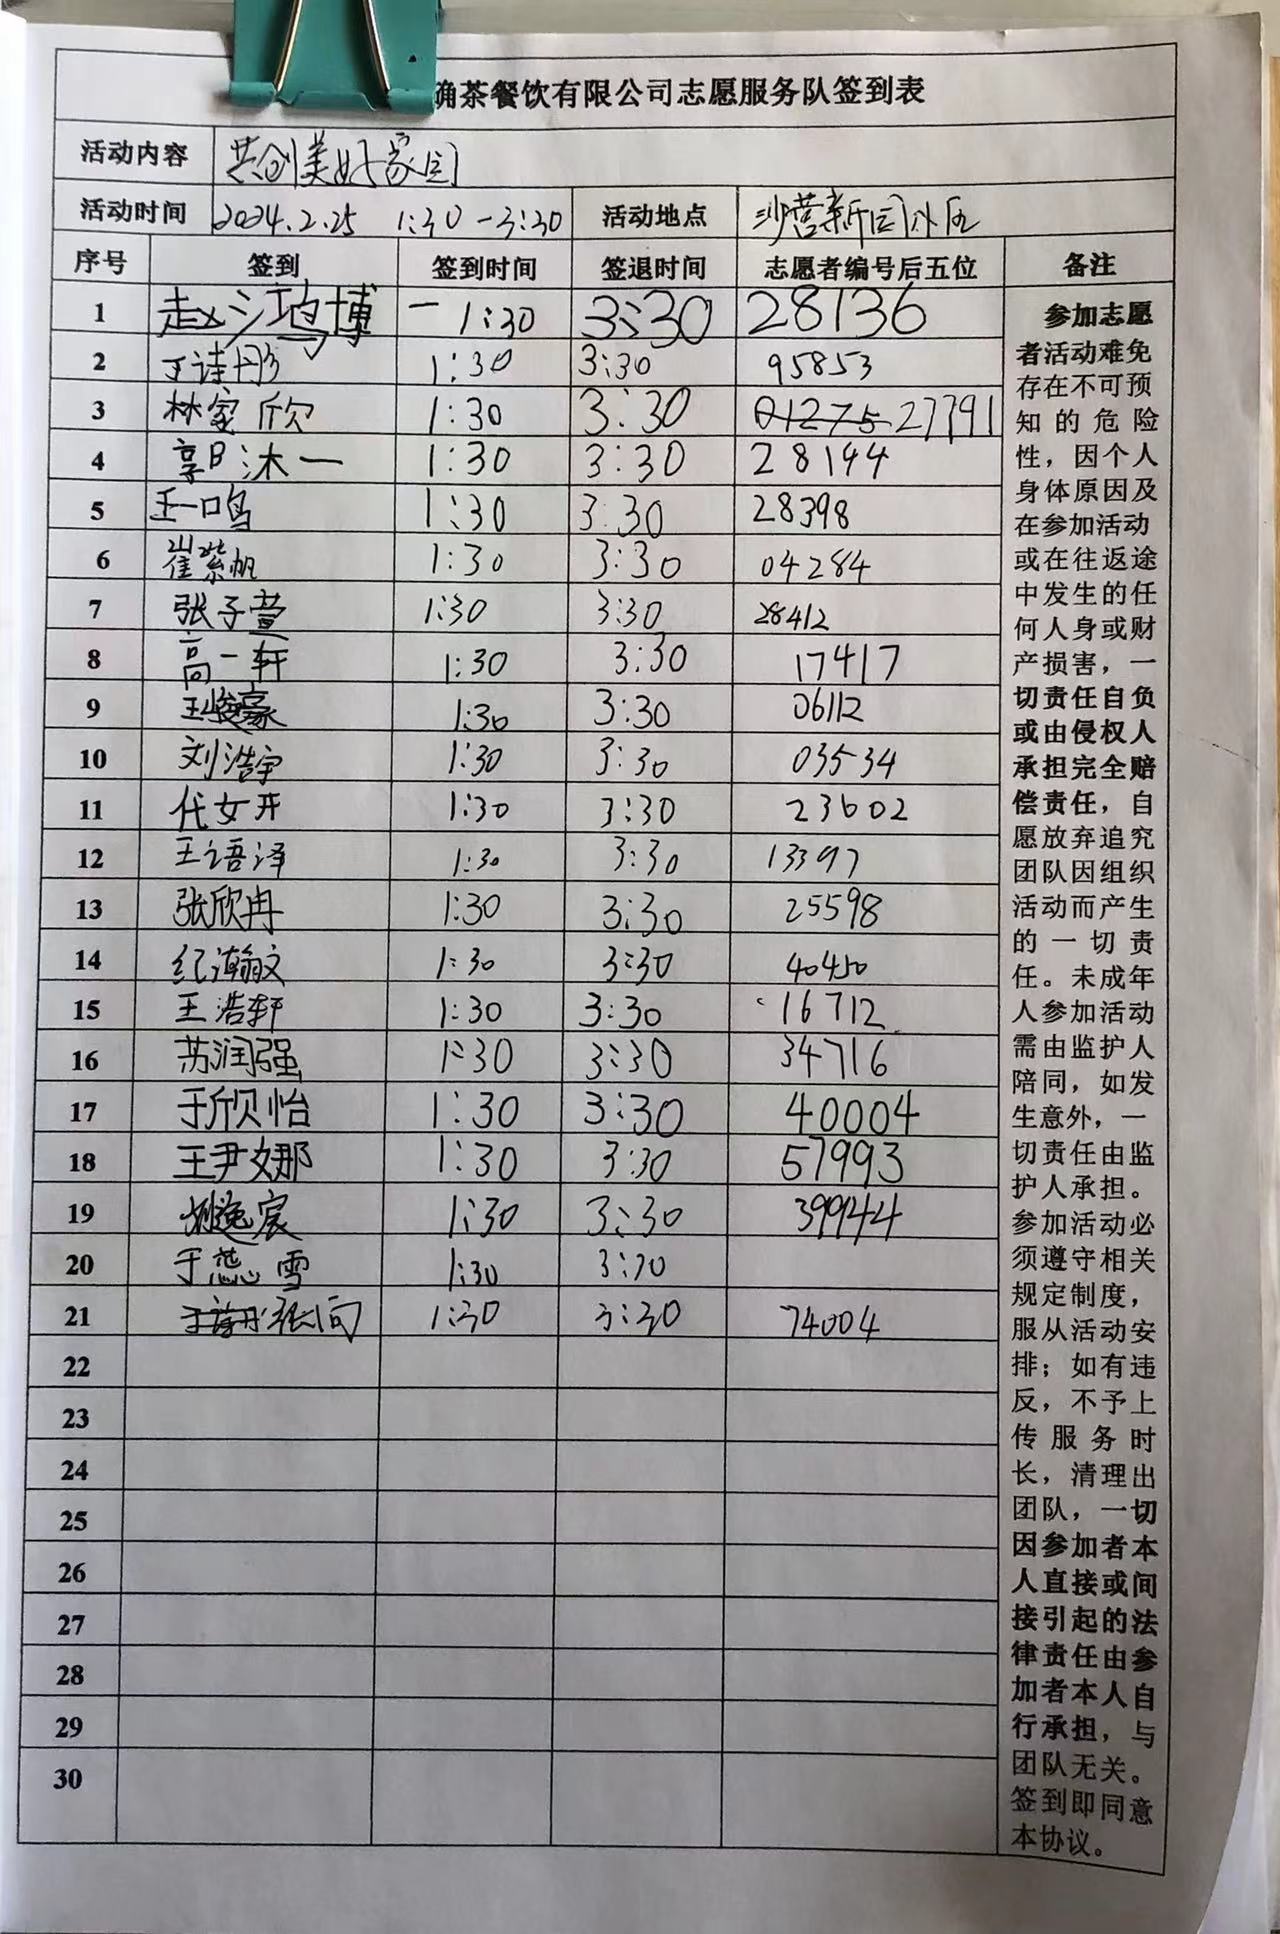 确茶餐饮有限公司志愿服务队签到表
活动内容 共创美好家园
活动时间 2024.2.25 1:30-3:30 活动地点 沙营新园小区
序号 签到 签到时间 签退时间 志愿者编号后五位 备注
1 赵鸿博 1:30 3:30 28136
2 丁诗彤 1:30 3:30 95853
3 林家欣 1:30 3:30 01275 27791
4 郭沐一 1:30 3:30 28144
5 王一鸣 1:30 3:30 28398
6 崔紫帆 1:30 3:30 04284
7 张子萱 1:30 3:30 28412
8 高一轩 1:30 3:30 17417
9 王俊豪 1:30 3:30 06112
10 刘浩宇 1:30 3:30 03534
11 代女开 1:30 3:30 23602
12 王语泽 1:30 3:30 13397
13 张欣冉 1:30 3:30 25598
14 纪瀚文 1:30 3:30 40450
15 王浩轩 1:30 3:30 16712
16 苏润强 1:30 3:30 34716
17 于欣怡 1:30 3:30 40004
18 王尹娜 1:30 3:30 57993
19 姚逸宸 1:30 3:30 39944
20 于蕊雪 1:30 3:30
21 张 1:30 3:30 74004
22
23
24
25
26
27
28
29
30
参加志愿
者活动难免
存在不可预
知的危险
性，因个人
身体原因及
在参加活动
或在往返途
中发生的任
何人身或财
产损害，一
切责任自负
或由侵权人
承担完全赔
偿责任，自
愿放弃追究
团队因组织
活动而产生
的一切责
任。未成年
人参加活动
需由监护人
陪同，如发
生意外，一
切责任由监
护人承担。
参加活动必
须遵守相关
规定制度，
服从活动安
排；如有违
反，不予上
传服务时
长，清理出
团队，一切
因参加者本
人直接或间
接引起的法
律责任由参
加者本人自
行承担，与
团队无关。
签到即同意
本协议。